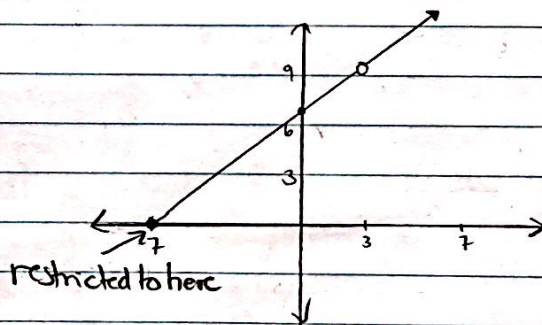 9
6
3
-7
3
7
restricted to here